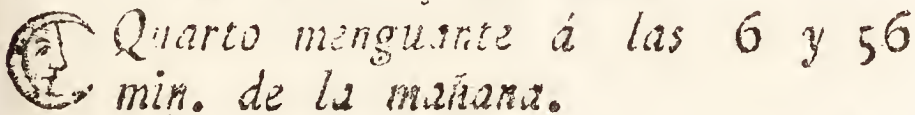 Quarto menguante á las 6 y 56
min. de la mañana.